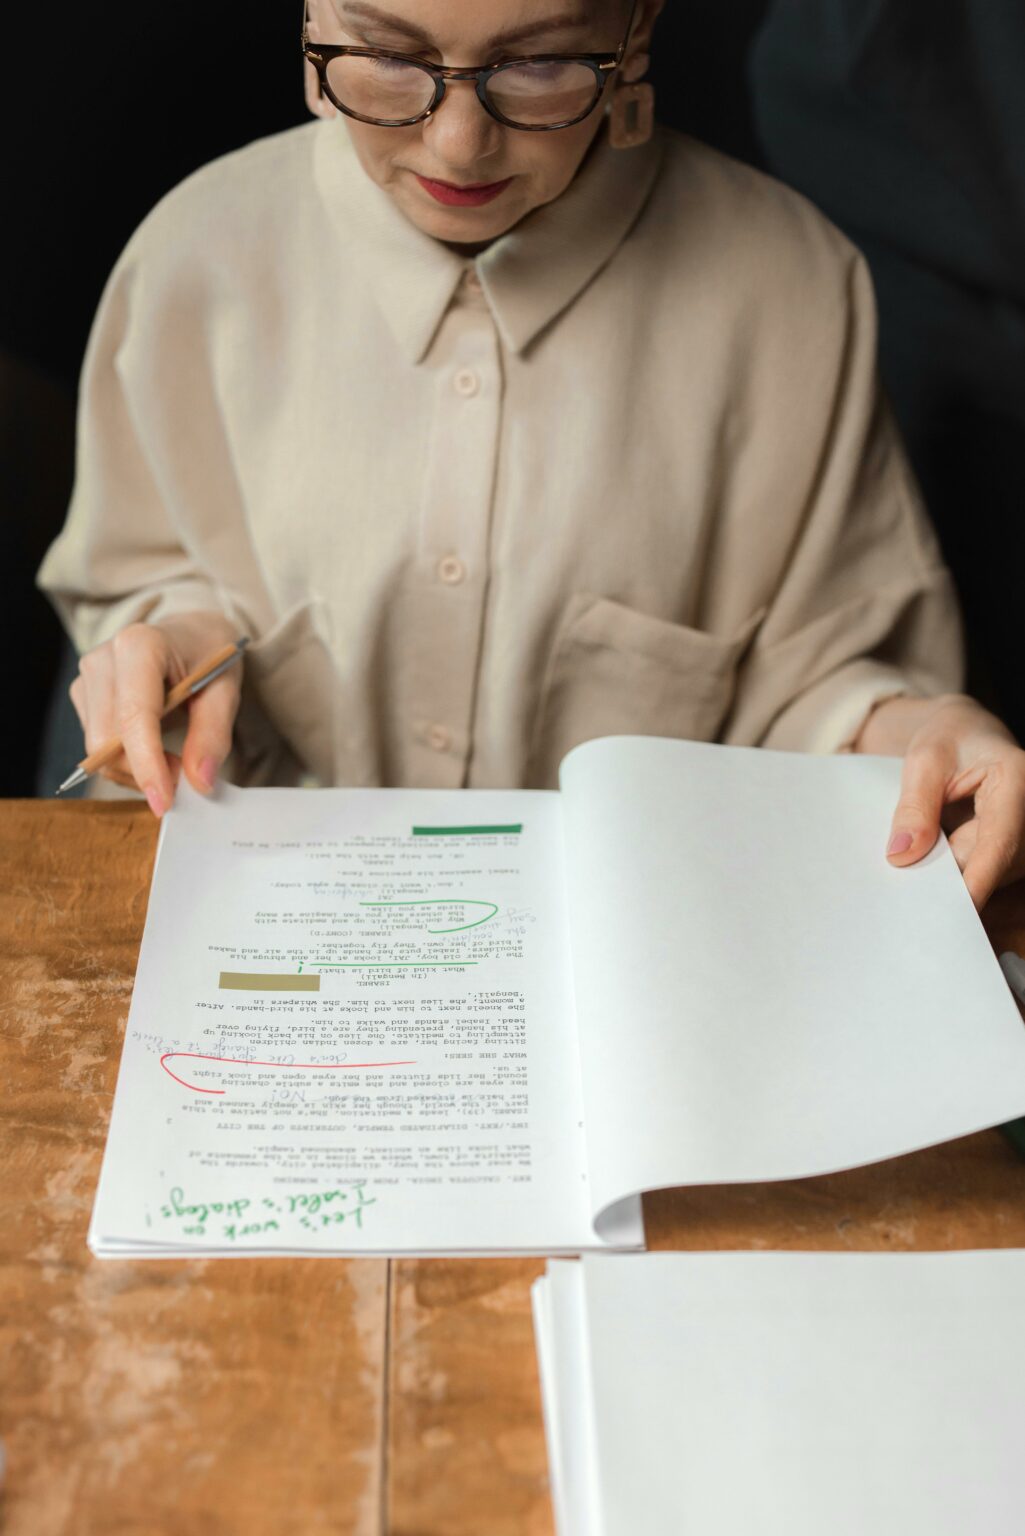 Let's work on
Isabel's dialogs!
EXT. CALCUTTA, INDIA, FROM ABOVE - MORNING
We soar above the busy, dilapidated city, towards the
outskirts of town, where we close in on the remnants of
what looks like an ancient, abandoned temple.
INT./EXT. DILAPIDATED TEMPLE, OUTSKIRTS OF THE CITY
2
2
ISABEL (39), leads a meditation. She's not native to this
part of the world, though her skin is deeply tanned and
her hair is streaked from the
No!
Her eyes are closed and she emits a subtle chanting
sound. Her lids flutter and her eyes open and look right
at us.
don't like this part let's
change it a little
WHAT SHE SEES:
Sitting facing her, are a dozen Indian children
attempting to meditate. One lies on his back looking up
at his hands, pretending they are a bird, flying over
head. Isabel stands and walks to him.
She kneels next to him and looks at his bird-hands. After
a moment, she lies next to him. She whispers in
'Bengali'.
ISABEL
(In Bengali)
What kind of bird is that?
!
The 7 year old boy, JAI, looks at her and shrugs his
shoulders. Isabel puts her hands up in the air and makes
a bird of her own. They fly together.
she shouldn't
say
ISABEL (CONT'D)
(Bengali)
Why don't you sit up and meditate with
the others and you can imagine as many
birds as you like.
JAI
(Bengali) whispering
I don't want to close my eyes today.
Isabel examines his precious face.
ISABEL
OK. But help me with the bell.
Jai smiles and excitedly scampers to his feet. He puts
his hands out to help Isabel up.